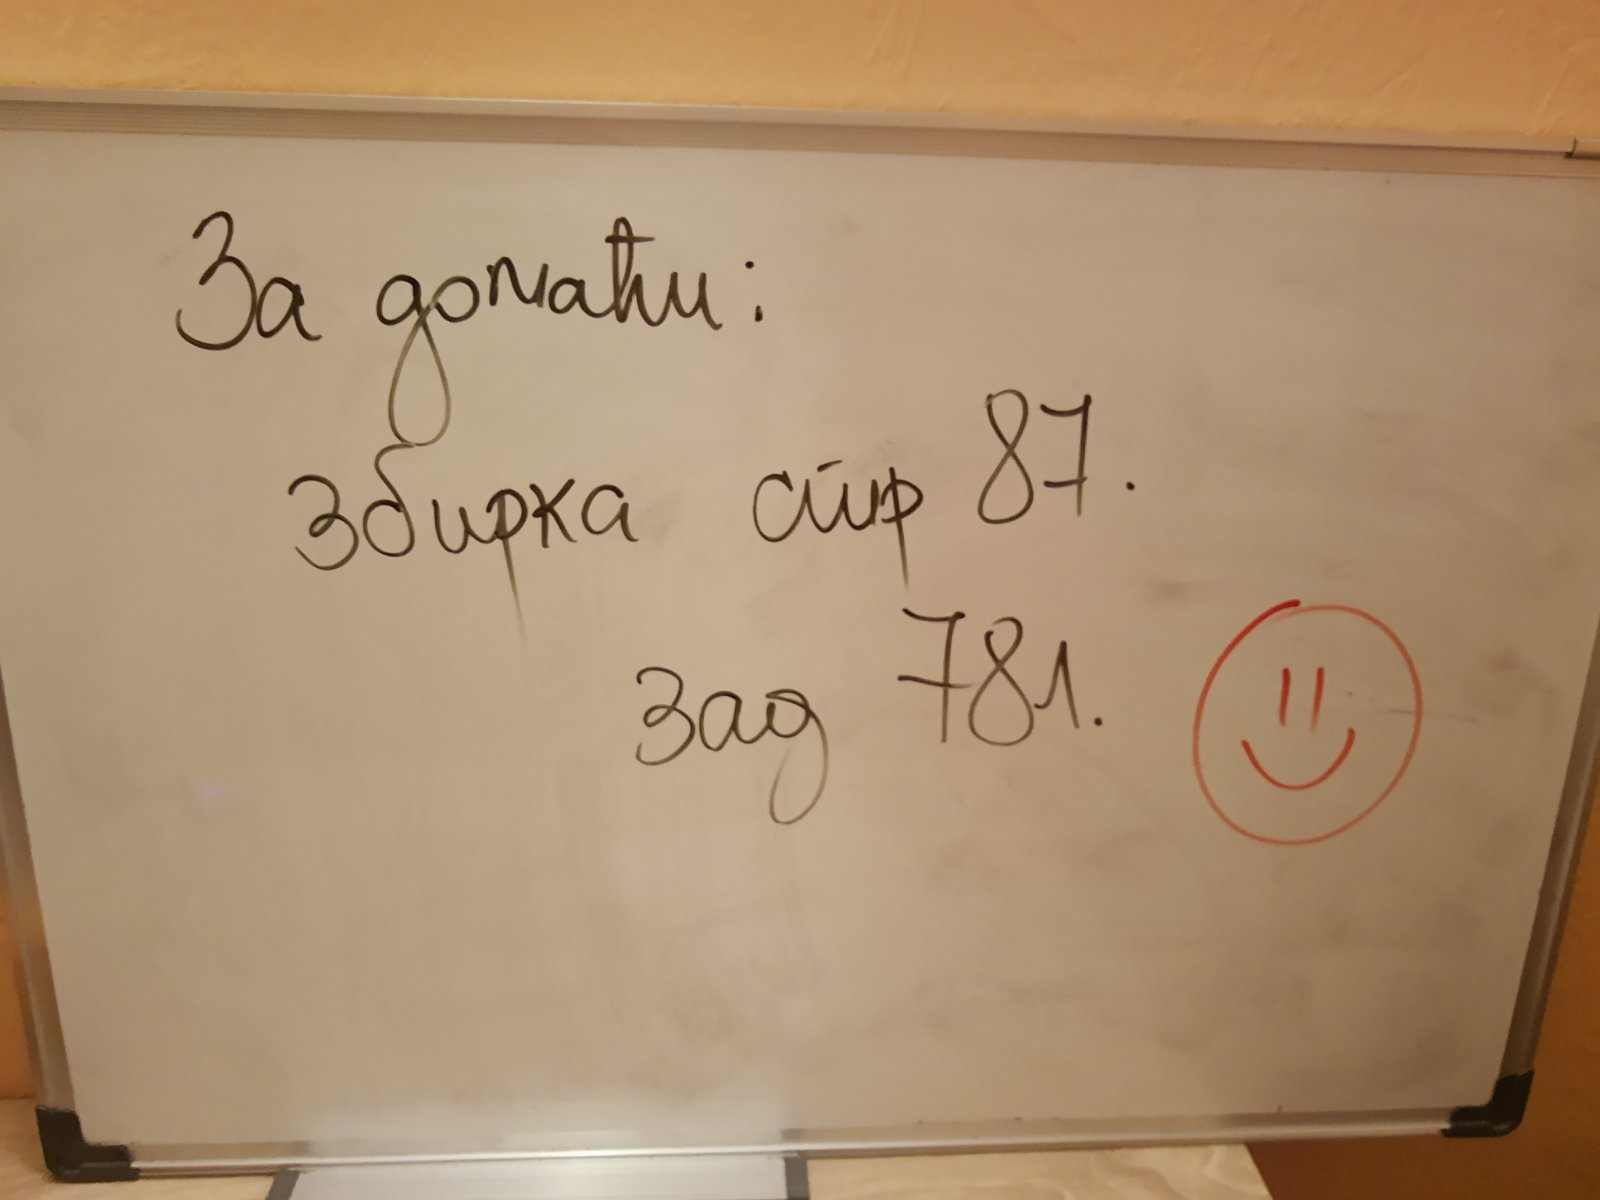 За домаћи:
збирка стр 87.
зад 781.